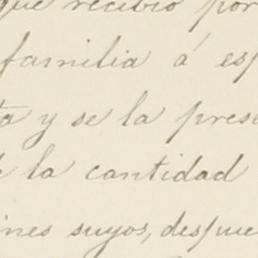 que recibio por
familia á esp
ta y se la pres
e la cantidad
ines suyos, despue